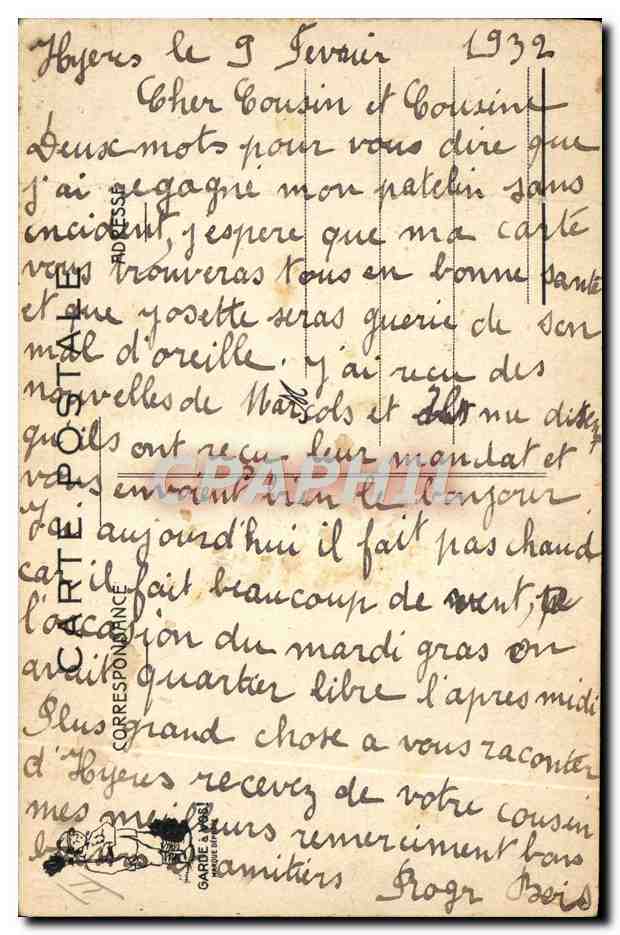 Hyeres le 9 Fevrier 1932
Cher Cousin et Cousine
Deux mots pour vous dire que
j'ai regagné mon patelin sans
incident, j'espere que ma carte
vous trouveras tous en bonne santé
et que Yosette seras guerie de son
mal d'oreille. j'ai reçu des
nouvelles de Marcols et Ils me disent
qu'ils ont reçu leur mandat et
vous envoient bien le bonjour
Ici aujourd'hui il fait pas chaud
car il fait beaucoup de vent,
l'occasion du mardi gras on
avait quartier libre l'apres midi
Plus grand chose a vous raconter
d'Hyeres recevez de votre cousin
mes meilleurs remerciment bons
d'amitiers Rogr
CARTE POSTALE
CORRESPONDANCE
ADRESSE
GARDE à VOS!
MARQUE DÉPOSÉE
CPAPHIL